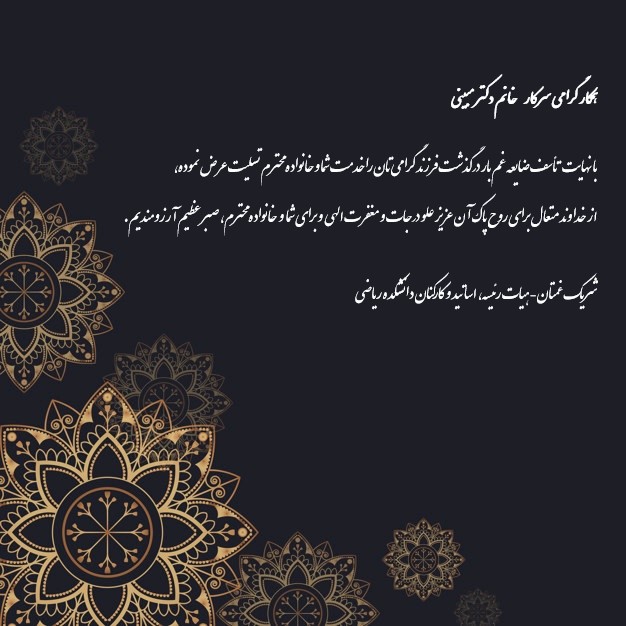 همکار گرامی سرکار خانم دکتر مبینی
با نهایت تأسف ضایعه غم بار درگذشت فرزند گرامی تان را خدمت شما و خانواده محترم تسلیت عرض نموده،
از خداوند متعال برای روح پاک آن عزیز علو درجات و مغفرت الهی و برای شما و خانواده محترم، صبر عظیم آرزومندیم.
شریک غمتان-هیات رئیسه، اساتید و کارکنان دانشکده ریاضی